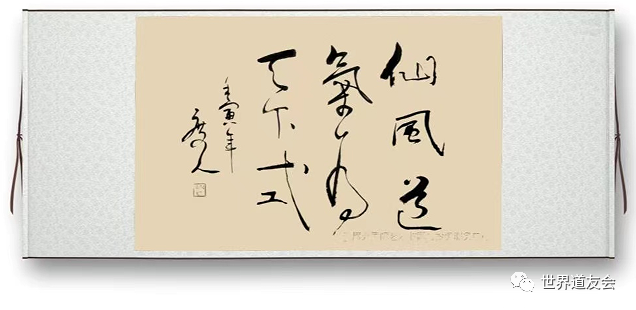 仙風道
氣為
天下式
壬寅年
世界道友会